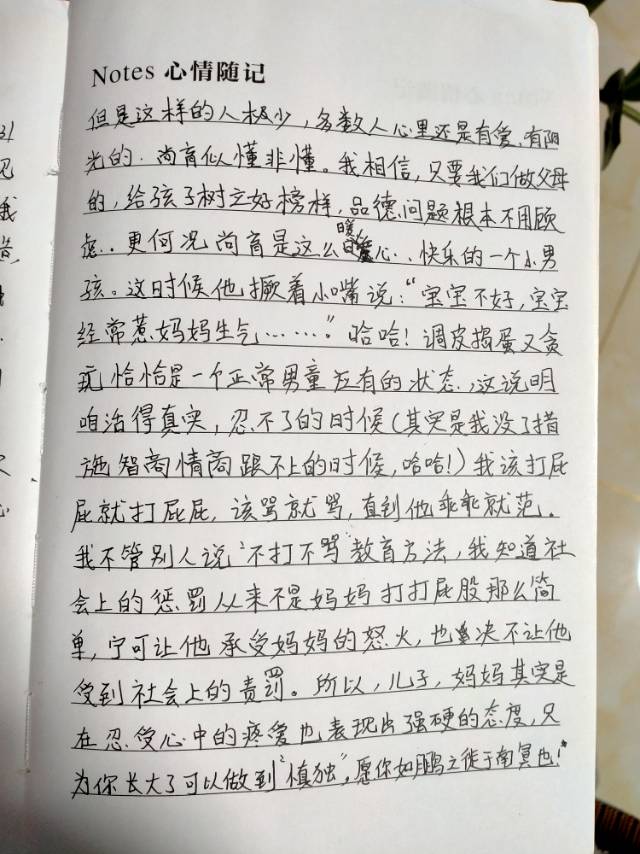 31
见
我
Notes 心情随记
但是这样的人极少，多数人心里还是有爱、有阳
光的．尚育似懂非懂。我相信，只要我们做父母
的，给孩子树立好榜样，品德问题根本不用顾
虑．．更何况尚育是这么暖心．．快乐的一个小男
孩。这时候他撅着小嘴说："宝宝不好，宝宝
经常惹妈妈生气……"。哈哈！调皮捣蛋又贪
玩恰恰是一个正常男童应有的状态．，这说明
咱活得真实，忍不了的时候（其实是我没了措
施智商情商跟不上的时候，哈哈！）我该打屁
屁就打屁屁，该骂就骂，直到他乖乖就范。
我不管别人说"不打不骂"教育方法，我知道社
会上的惩罚从来不是妈妈打打屁股那么简
单，宁可让他承受妈妈的怒火，也决不让他
受到社会上的责罚。所以，儿子，妈妈其实是
在忍受心中的疼爱也表现出强硬的态度，只
为你长大了可以做到"慎独"，愿你如鹏之徙于南冥也！